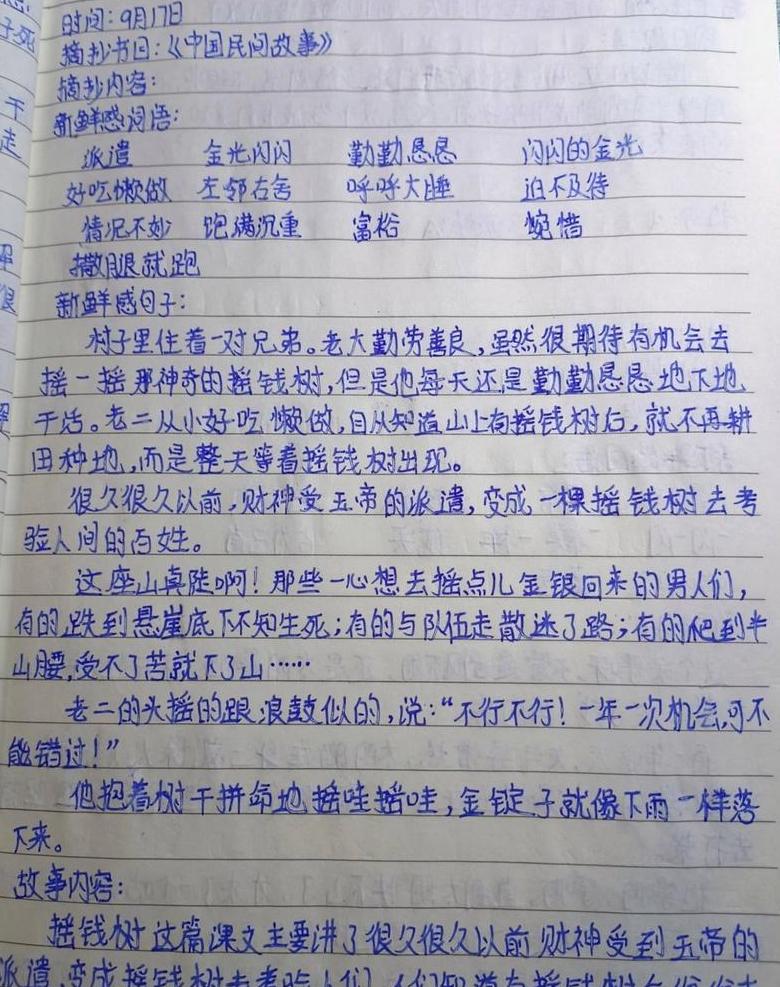 时间：9月17日
摘抄书目：《中国民间故事》
摘抄内容：
新鲜感词语：
派遣 金光闪闪 勤勤恳恳 闪闪的金光
好吃懒做 左邻右舍 呼呼大睡 迫不及待
情况不妙 饱满沉重 富裕 惋惜
撒腿就跑
新鲜感句子：
村子里住着一对兄弟。老大勤劳善良，虽然很期待有机会去
摇一摇那神奇的摇钱树，但是他每天还是勤勤恳恳地下地
干活。老二从小好吃懒做，自从知道山上有摇钱树后，就不再耕
田种地，而是整天等着摇钱树出现。
很久很久以前，财神受玉帝的派遣，变成一棵摇钱树去考
验人间的百姓。
这座山真陡啊！那些一心想去摇点儿金银回来的男人们，
有的跌到悬崖底下不知生死；有的与队伍走散迷了路；有的爬到半
山腰，受不了苦就下了山……
老二的头摇的跟浪鼓似的，说：“不行不行！一年一次机会，可不
能错过！”
他抱着树干拼命地摇哇摇哇，金锭子就像下雨一样落
下来。
故事内容：
摇钱树这篇课文主要讲了很久很久以前财神受到玉帝的
派遣，变成摇钱树去考验人们，人们知道有摇钱树